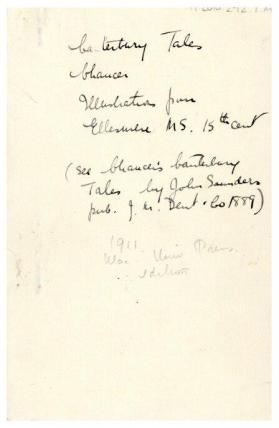 Canterbury Tales
Chaucer
Illustrations from
Ellesmere MS. 15th cent
(see Chaucer's Canterbury
Tales by John Saunders
pub. J. M. Dent & Co 1889)
1911
Univ Press
edition